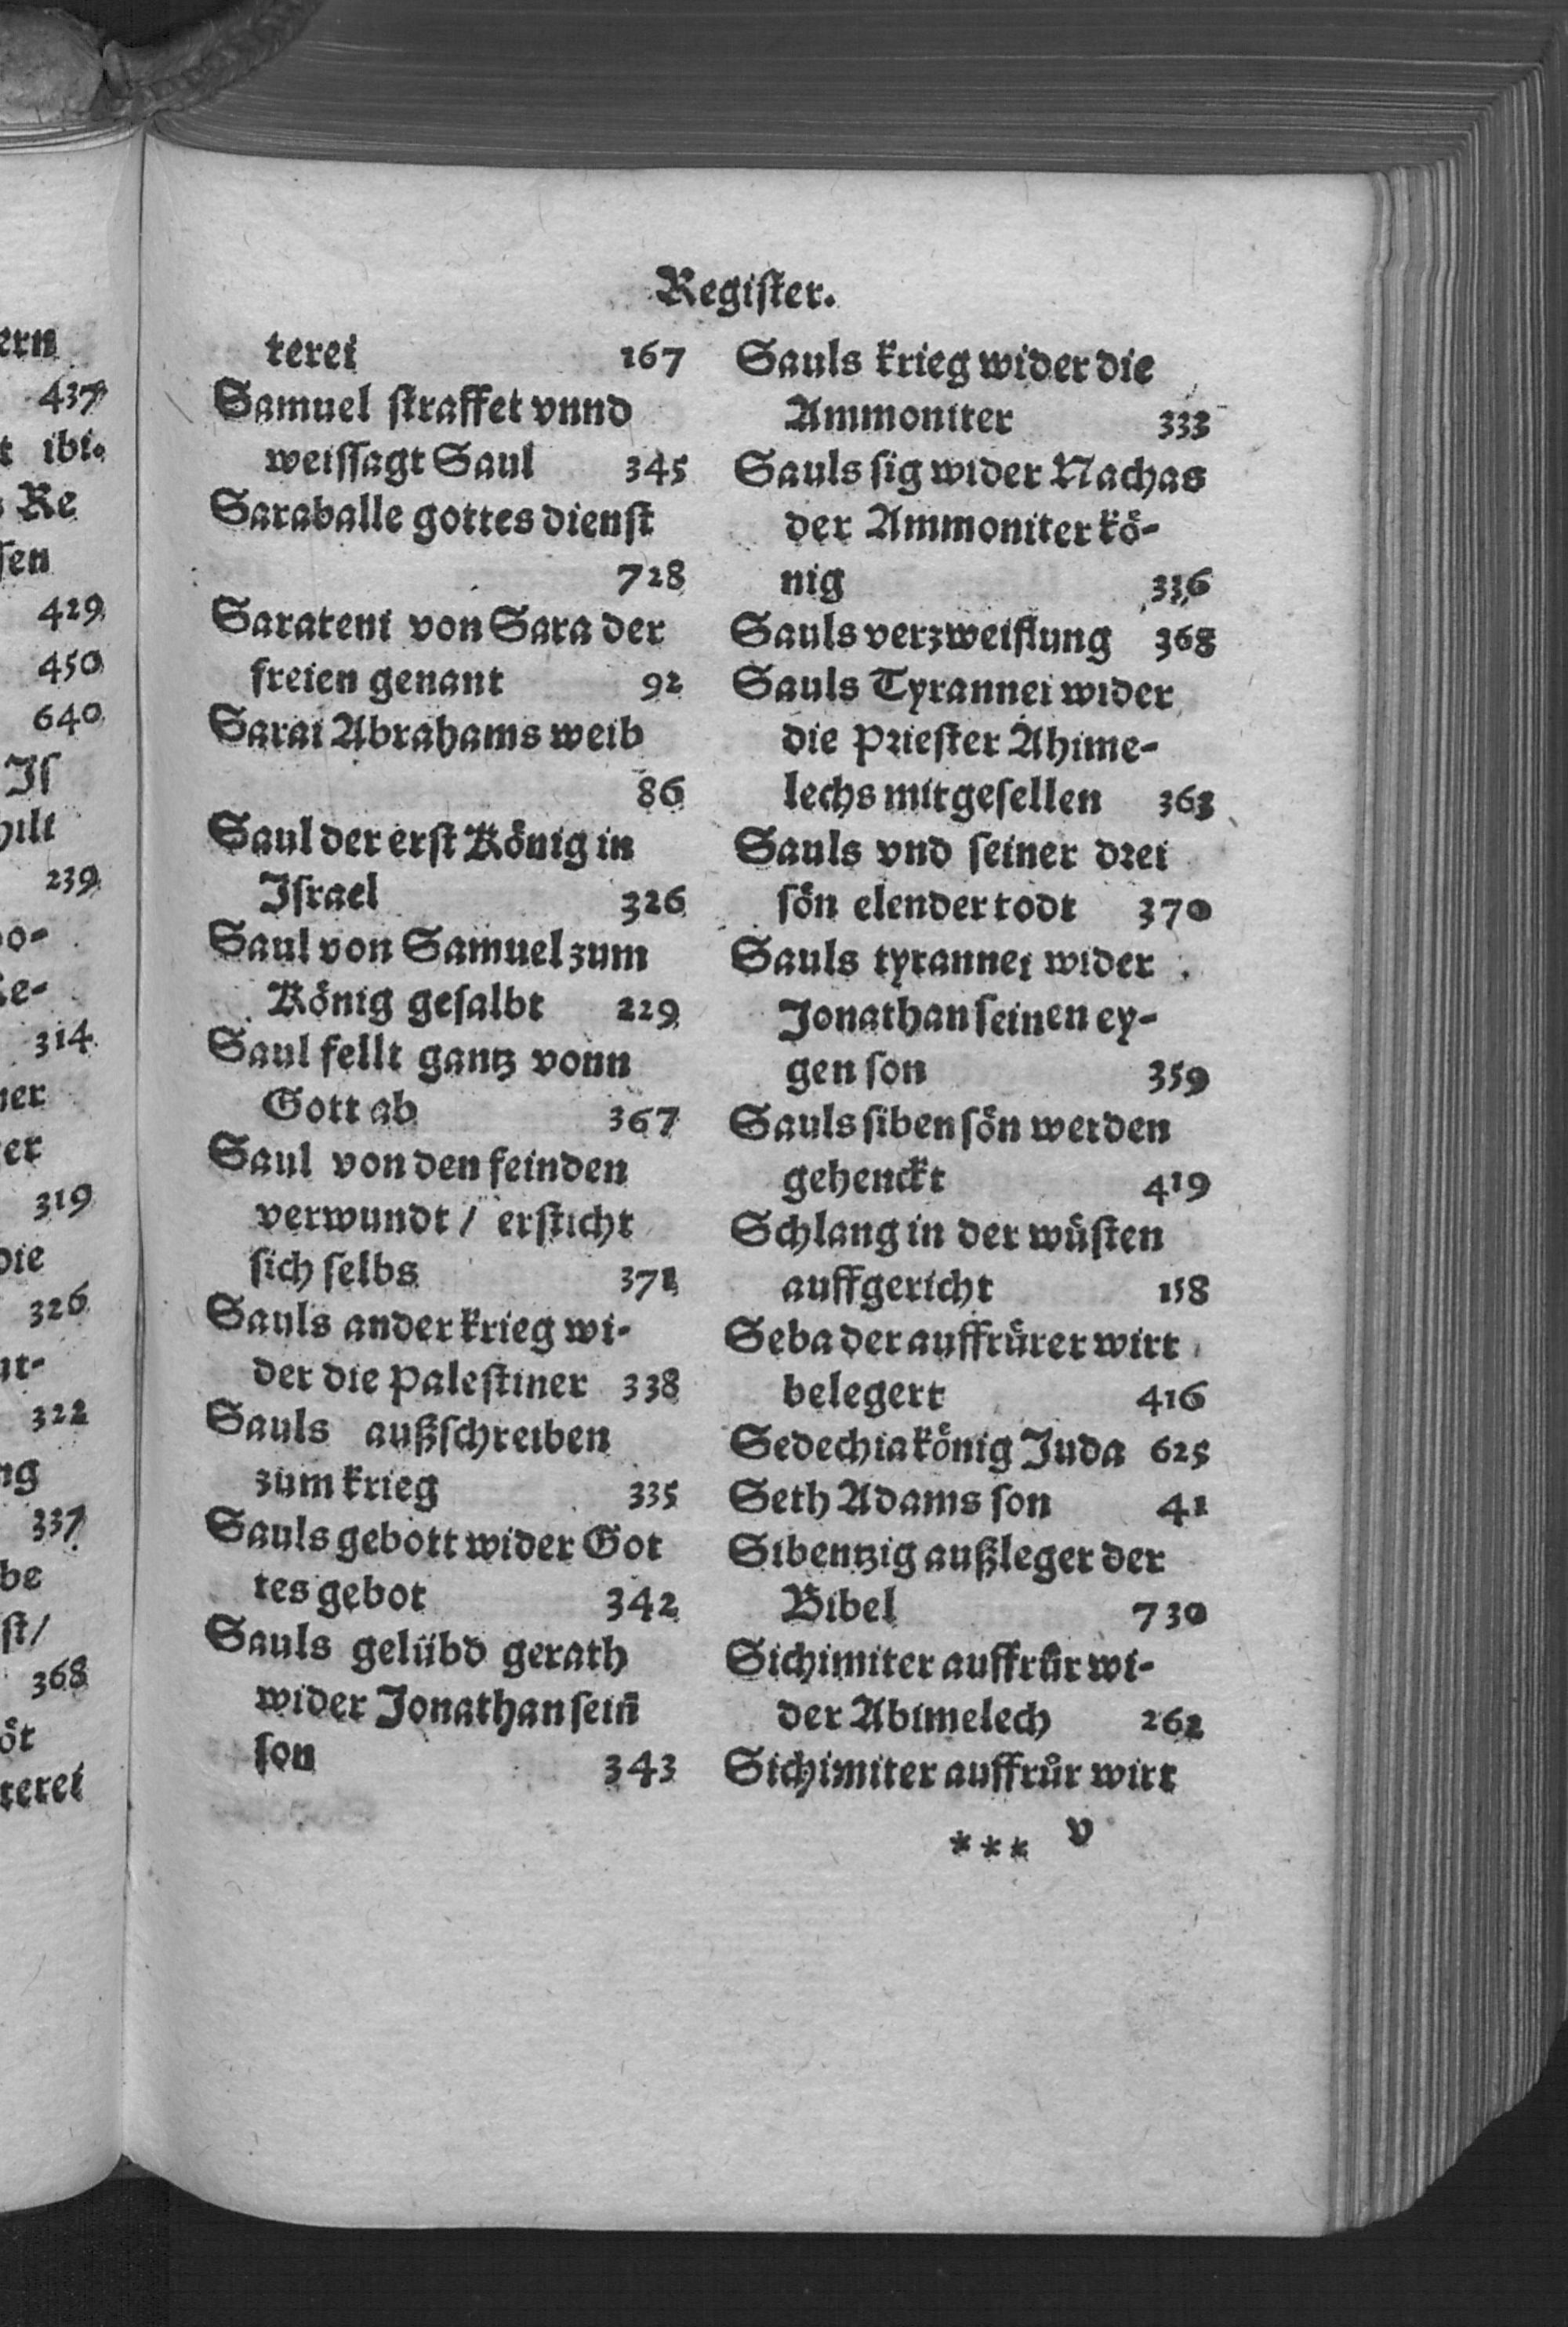 ern
437
t ibi.
s Re
sen
429
450
640
Iſ
hilt
239
bo-
Re-
314
ner
er
319
die
326
nt-
322
ng
337
be
ſt/
368
öt
terei
Regiſter.
terei 167
Samuel ſtraffet vnnd
weiſſagt Saul 345
Saraballe gottes dienſt
728
Sarateni von Sara der
freien genant 92
Sarai Abrahams weib
86
Saul der erſt König in
Iſrael 326
Saul von Samuel zum
König geſalbt 229
Saul fellt gantz vonn
Gott ab 367
Saul von den feinden
verwundt / erſticht
ſich ſelbs 371
Sauls ander krieg wi-
der die Paleſtiner 338
Sauls außſchreiben
zum krieg 335
Sauls gebott wider Got
tes gebot 342
Sauls gelübd gerath
wider Jonathan ſein̄
ſon 343
Sauls krieg wider die
Ammoniter 333
Sauls ſig wider Nachas
der Ammoniter kö-
nig 336
Sauls verzweiflung 368
Sauls Tyrannei wider
die Prieſter Ahime-
lechs mitgeſellen 363
Sauls vnd ſeiner drei
ſön elender todt 370
Sauls tyrannei wider
Jonathan ſeinen ey-
gen ſon 359
Sauls ſiben ſön werden
gehenckt 419
Schlang in der wüſten
auffgericht 158
Seba der auffrürer wirt
belegert 416
Sedechia könig Juda 625
Seth Adams ſon 41
Sibentzig außleger der
Bibel 730
Sichimiter auffrůr wi-
der Abimelech 262
Sichimiter auffrůr wirt
*** v